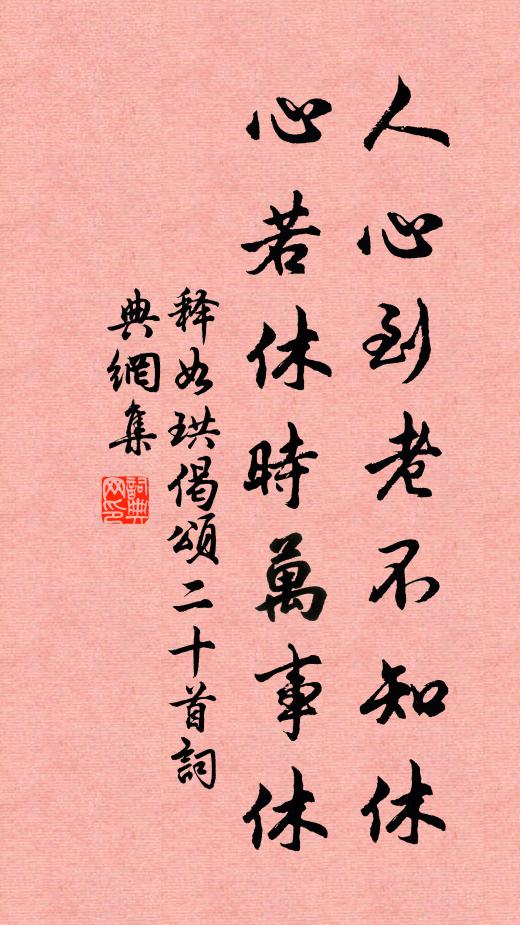 人心到老不知休
心若休時萬事休
释如珙偈頌二十首詞
典網集
詞典网印